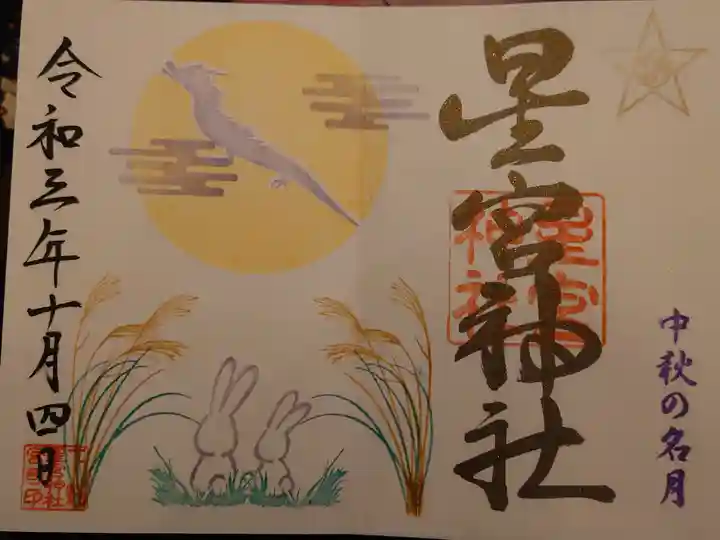 中秋の名月
星宮神社
星宮神社
令和三年十月四日